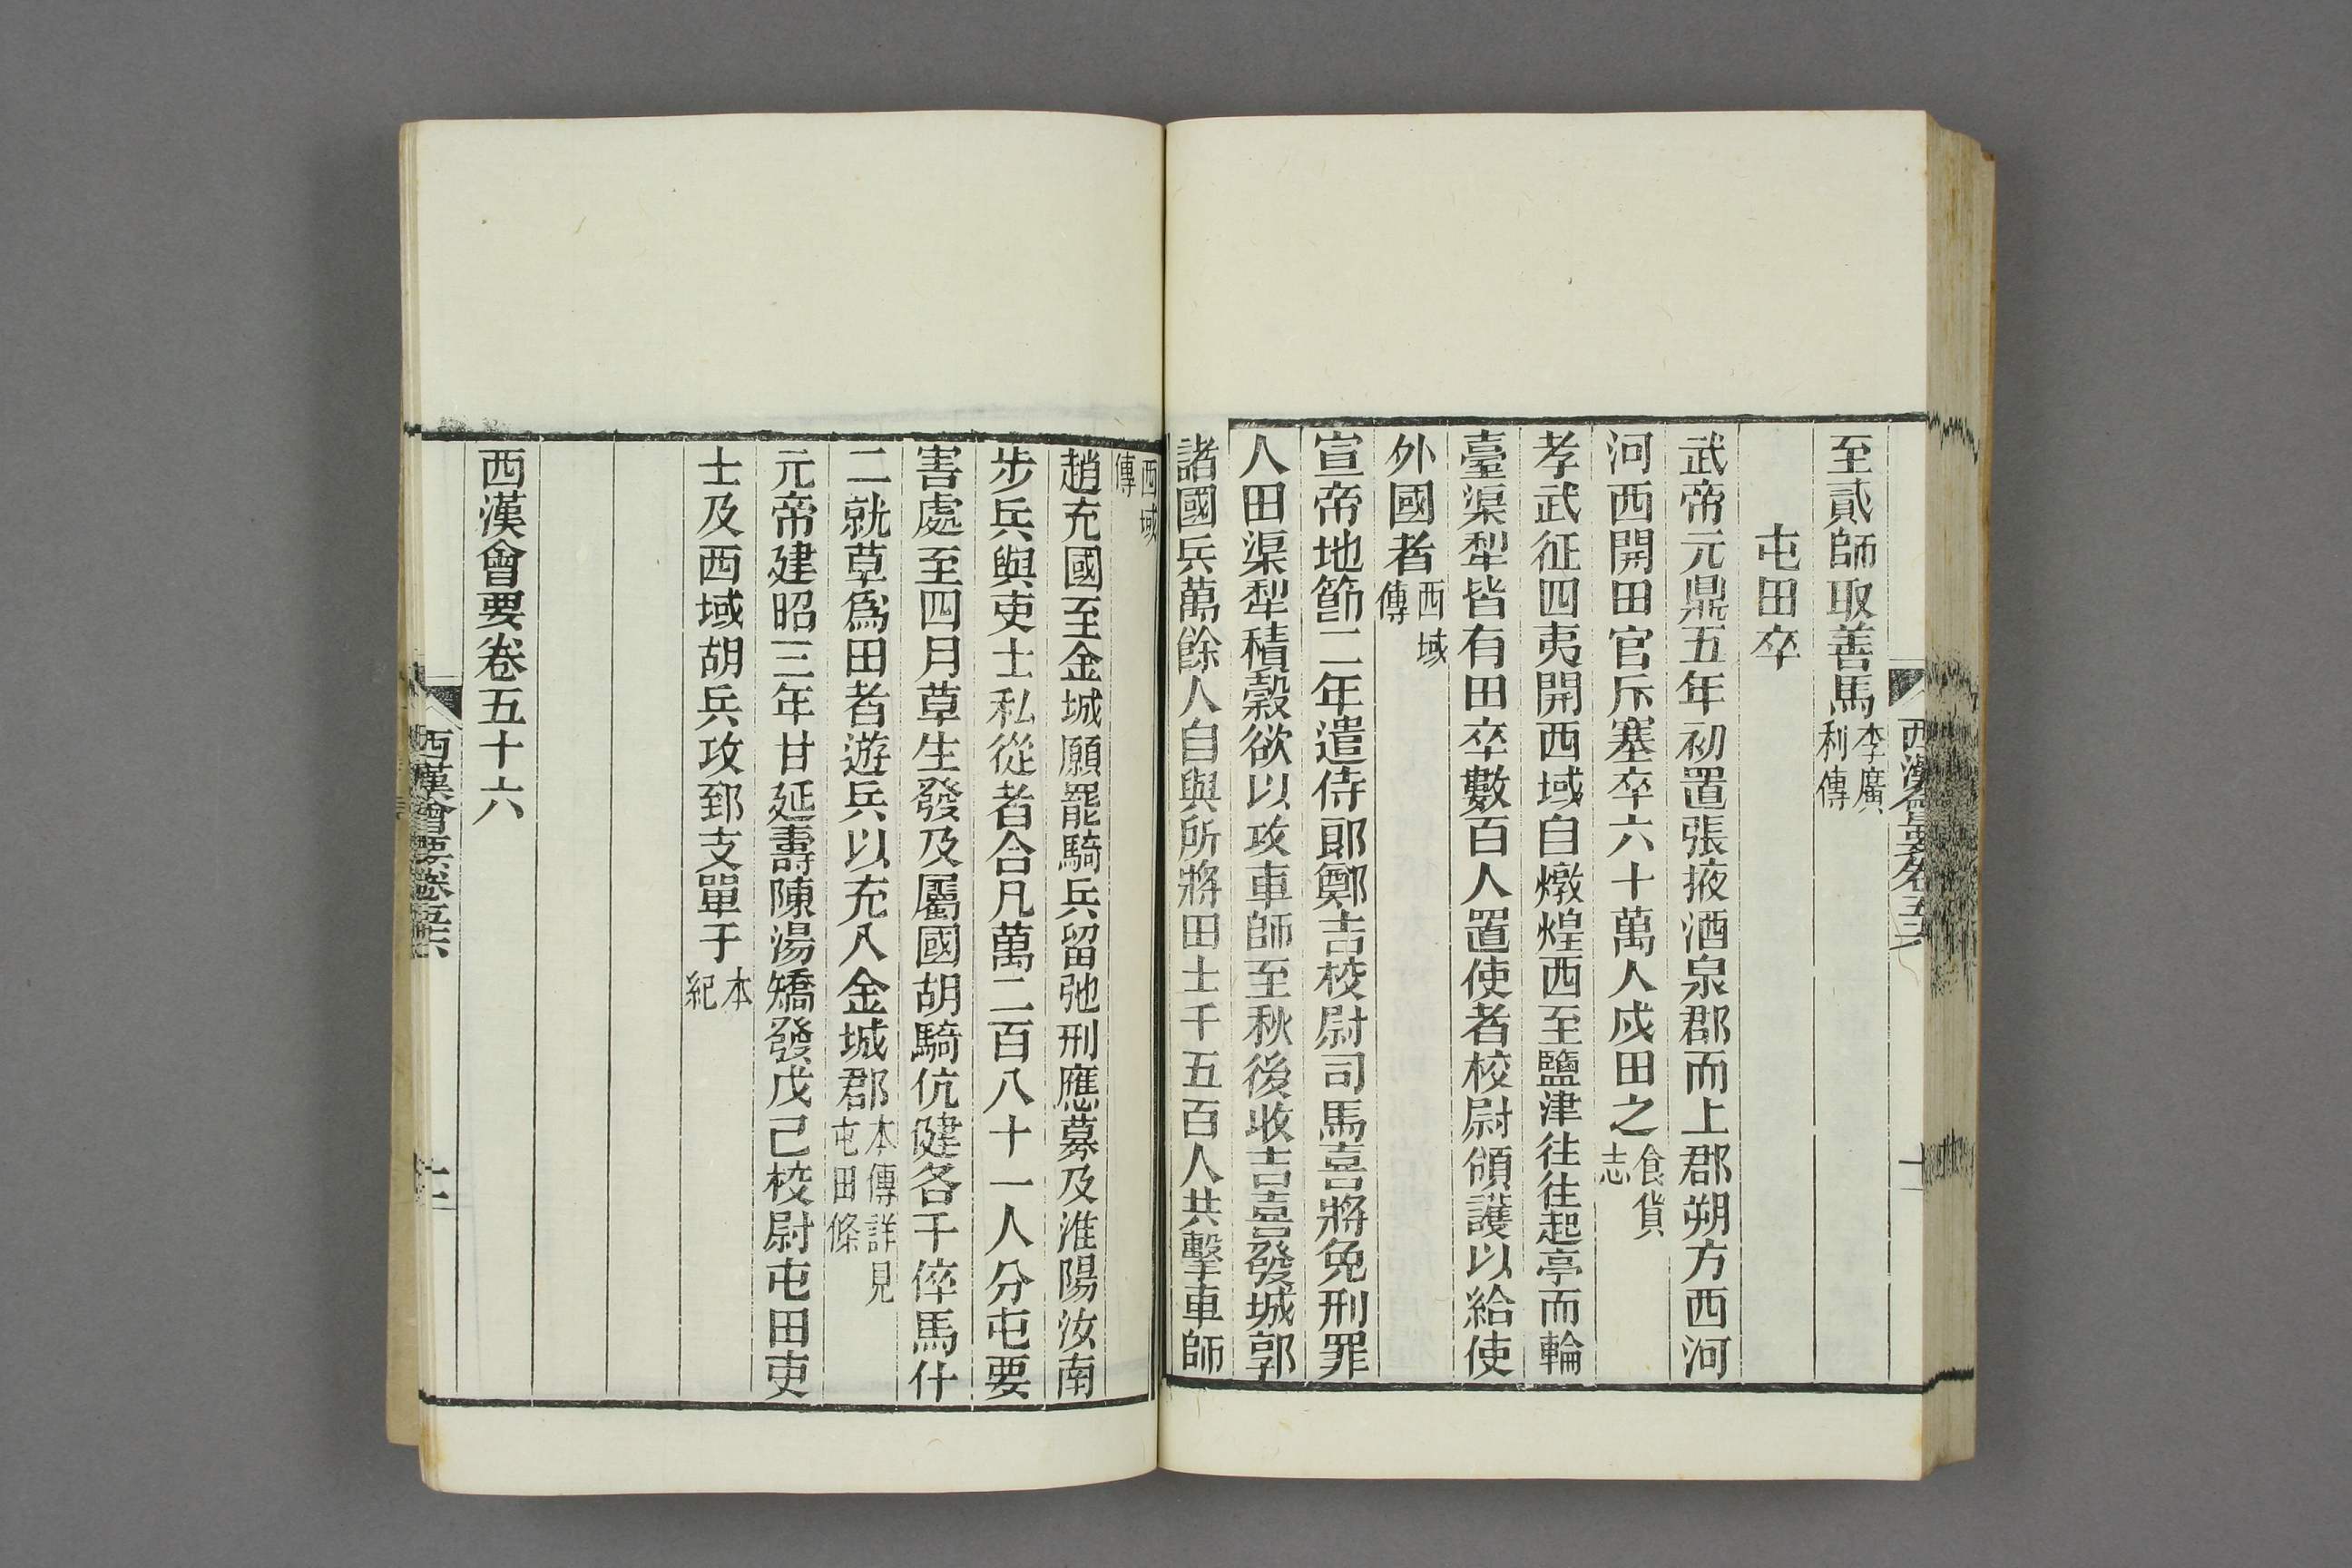 至貳師取善馬李廣利傳
屯田卒
武帝元鼎五年初置張掖酒泉郡而上郡朔方西河
河西開田官斥塞卒六十萬人戍田之食貨志
孝武征四夷開西域自燉煌西至鹽津往往起亭而輪
臺渠犁皆有田卒數百人置使者校尉領護以給使
外國者西域傳
宣帝地節二年遣侍郎鄭吉校尉司馬喜將免刑罪
人田渠犁積穀欲以攻車師至秋後收吉喜發城郭
諸國兵萬餘人自與所將田士千五百人共擊車師
西域傳
趙充國至金城願罷騎兵留弛刑應募及淮陽汝南
步兵與吏士私從者合凡萬二百八十一人分屯要
害處至四月草生發及屬國胡騎伉健各千倅馬什
二就草爲田者遊兵以充入金城郡本傳詳見屯田條
元帝建昭三年甘延壽陳湯矯發戊己校尉屯田吏
士及西域胡兵攻郅支單于本紀
西漢會要卷五十六
西漢會要卷五十六